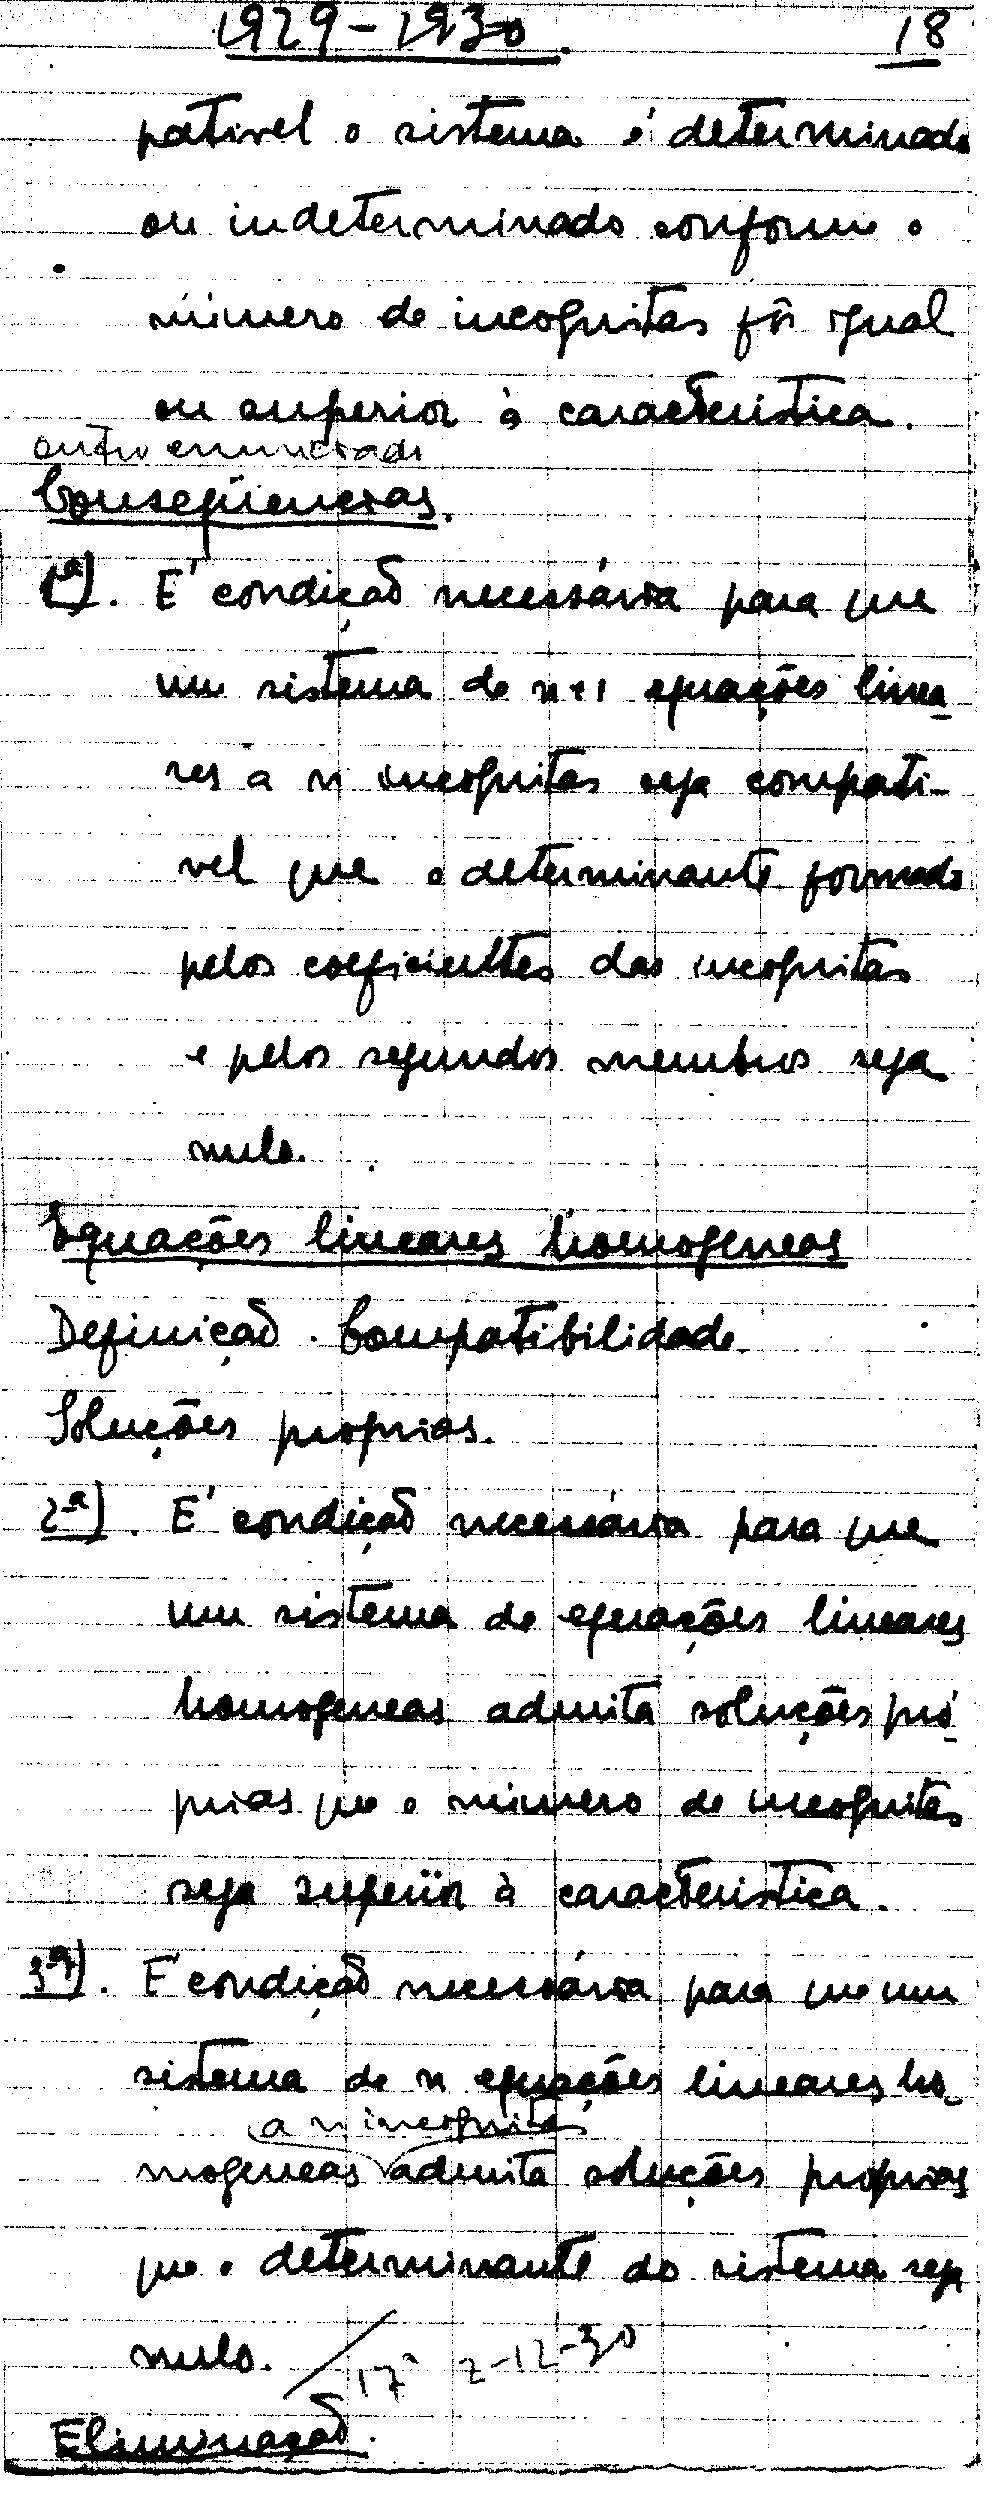 1929-1930. 18
pativel o sistema é determinado
ou indeterminado conforme o
número de incognitas fôr igual
ou superior à caracteristica.
outro enunciado
Conseqüencias.
1ª). E' condição necessária para que
um sistema de n+1 equações linea-
res a n incognitas seja compati-
vel que o determinante formado
pelos coeficientes das incognitas
e pelos segundos membros seja
nulo.
Equações lineares homogeneas
Definição. Compatibilidade.
Soluções proprias.
2ª). E' condição necessária para que
um sistema de equações lineares
homogeneas admita soluções pró-
prias que o número de incognitas
seja superior à caracteristica.
3ª). E' condição necessária para que um
sistema de n equações lineares ho-
a n incognitas
mogeneas admita soluções proprias
que o determinante do sistema seja
nulo. / 17ª 2-12-30
Eliminação.